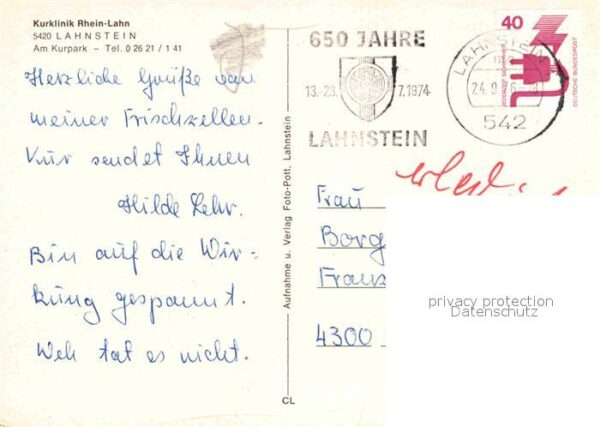 Kurklinik Rhein-Lahn
5420 LAHNSTEIN
Am Kurpark – Tel. 0 26 21 / 1 41
Herzliche Grüße von
meiner Frischzellen-
Kur sendet Ihnen
Hilde Lehr.
Bin auf die Wir-
kung gespannt.
Weh tat es nicht.
Aufnahme u. Verlag Foto-Pott, Lahnstein
CL
650 JAHRE
13.-23. 7.1974
LAHNSTEIN
LAHNSTEIN
542
40
DEUTSCHE BUNDESPOST
JEDERZEIT SICHERHEIT
Frau
Borg
Franz
4300
privacy protection
Datenschutz